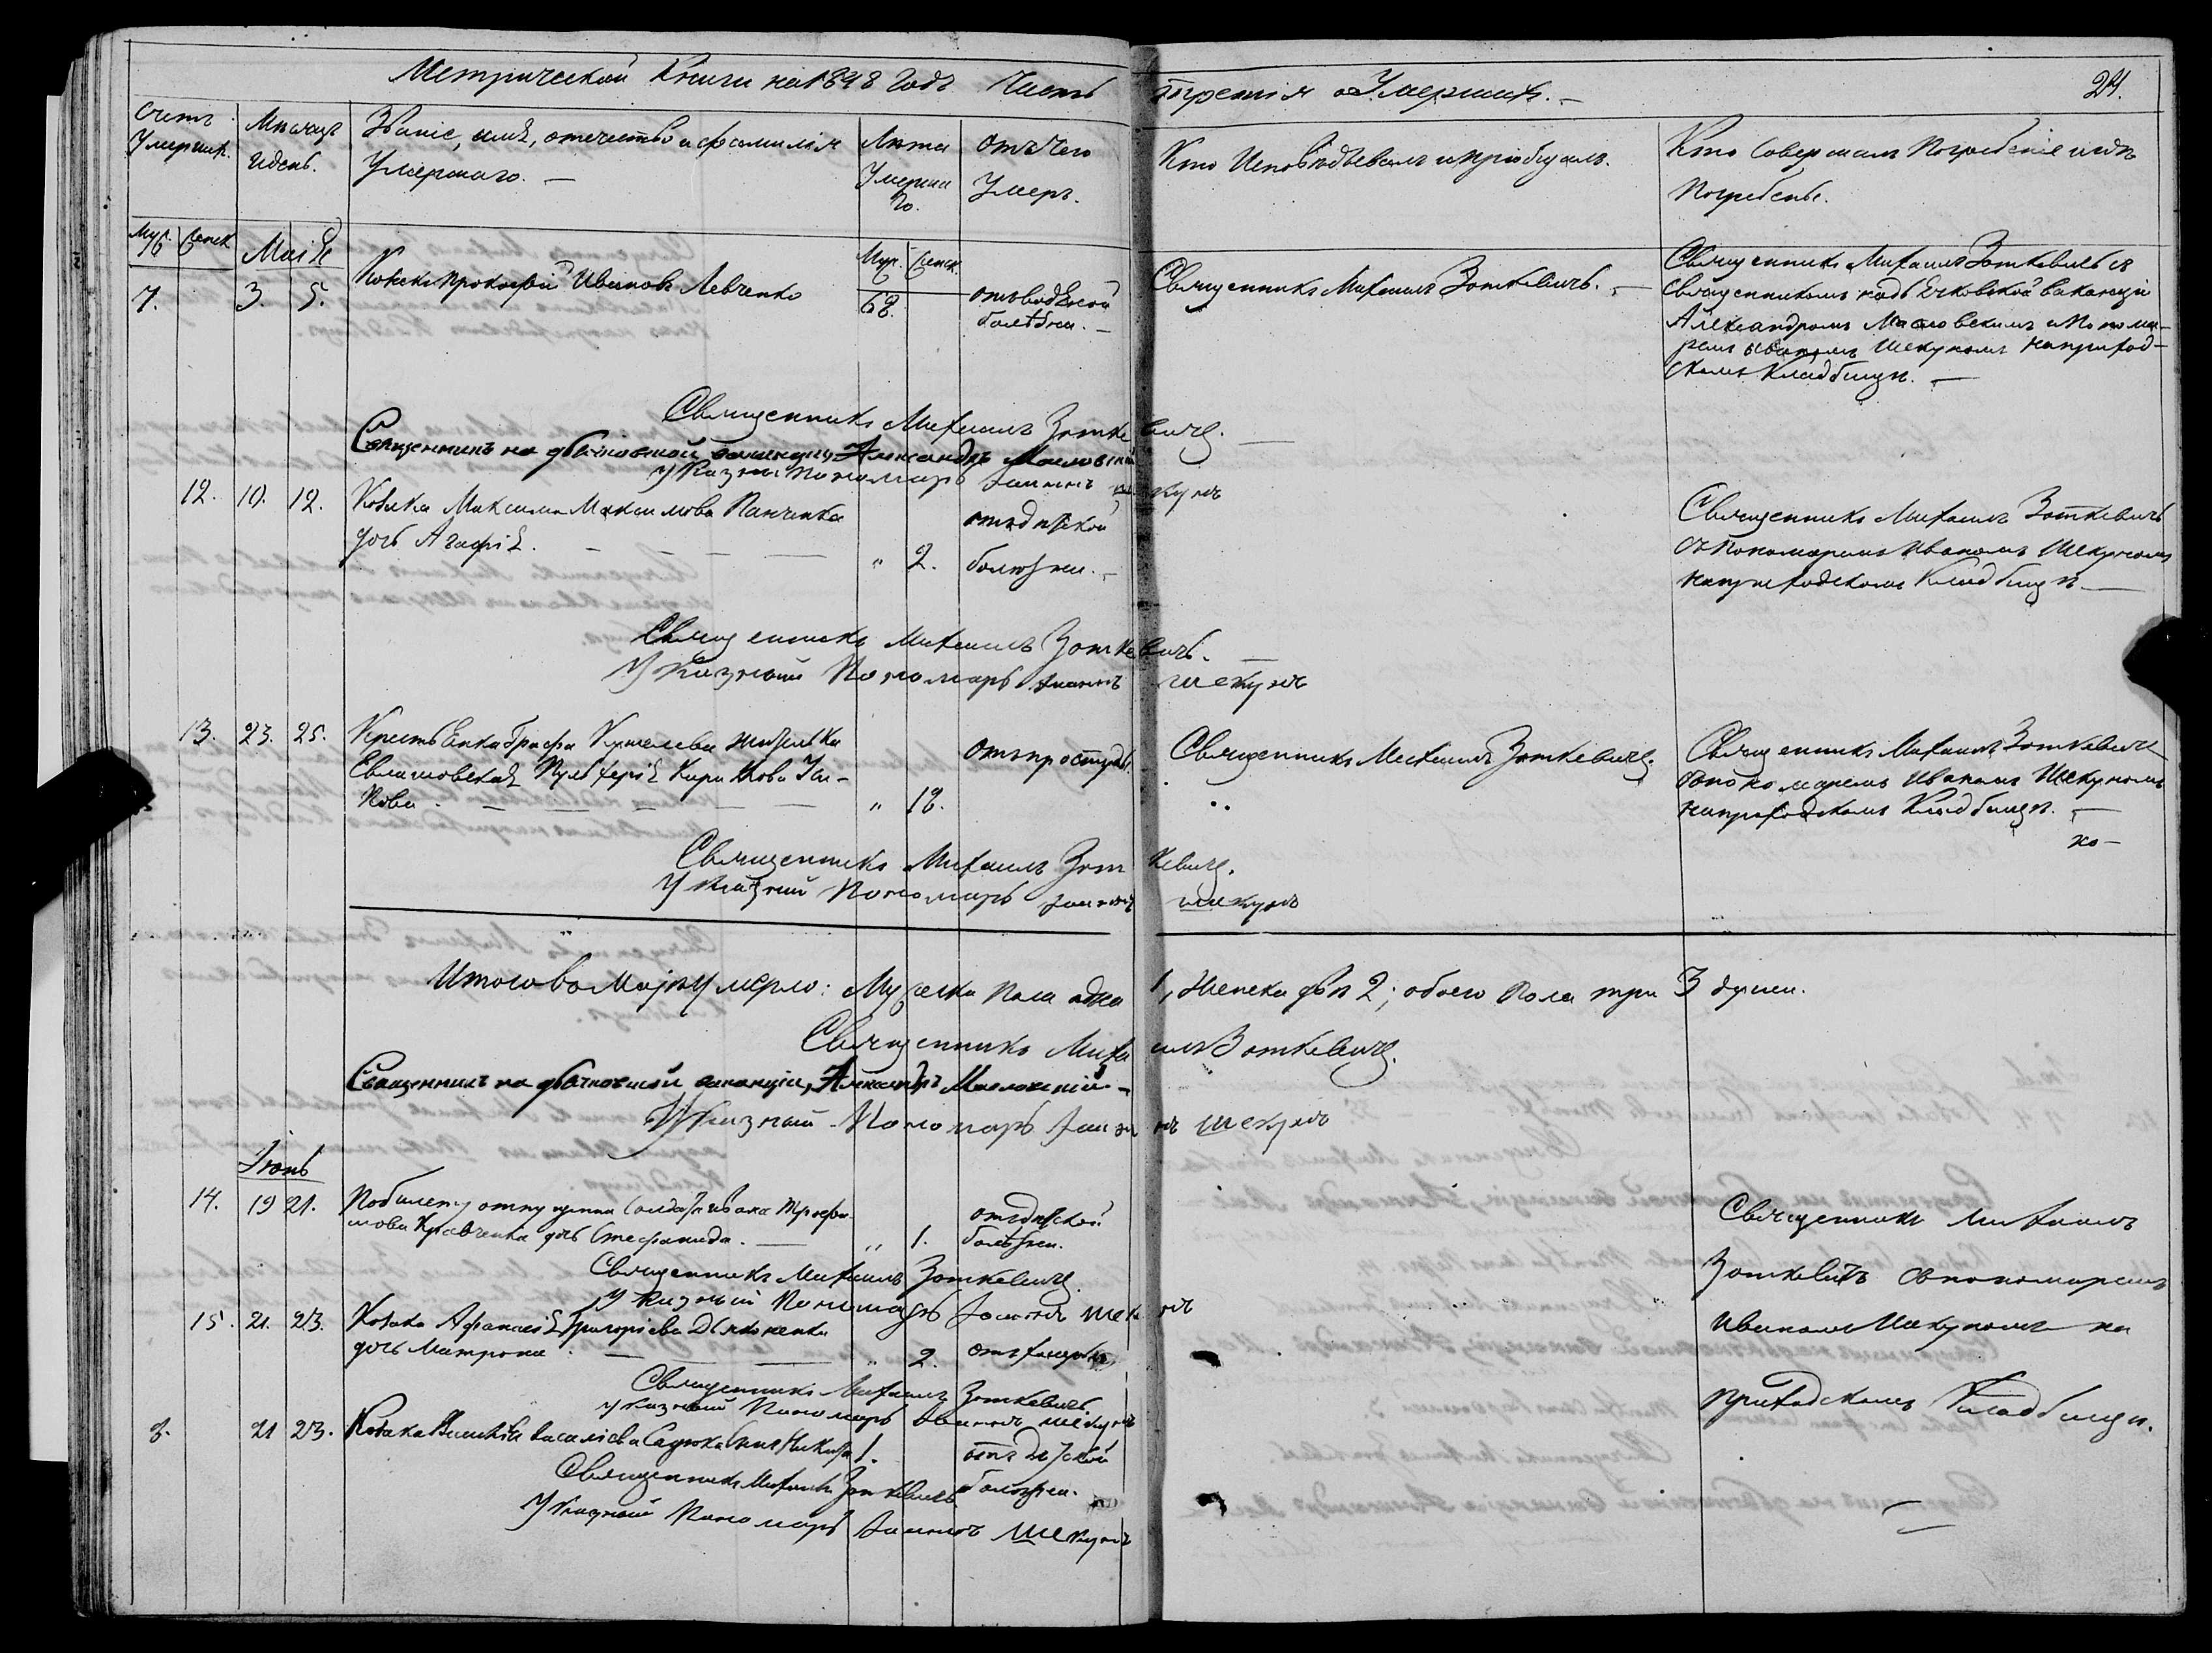 Метрической Книги на 1848 годъ Часть третія о Умершихъ. —
24.
Счетъ Умершихъ.
Мѣсяцъ и день.
Званіе, имя, отечество и фамилія Умершаго. —
Лѣта Умершаго.
Отъ чего Умеръ.
Кто Исповѣдывалъ и пріобщалъ.
Кто Совершалъ Погребеніе и гдѣ Погребены.
Муж. Женск. Маія Муж. Женск.
7. 3. 5. Козакъ Прокофій Ивановъ Левченко 68. отъ водяной болѣзни. —
Священникъ Михаилъ Зоткевичъ. —
Священникъ Михаилъ Зоткевичъ съ
священникомъ на дьячковской вакансіи
Александромъ Масловскимъ и Понома-
ремъ Иваномъ Шекуномъ на приход-
скомъ Кладбищѣ. —
Священникъ Михаилъ Зоткевичъ. —
Священникъ на дьячковской вакансіи, Александръ Масловскій
Указный Пономарь Іоаннъ Шекунъ
12. 10. 12. Козака Максима Максимова Панченка
дочь Агафія. — — — " 2. отъ дѣтской болѣзни. —
Священникъ Михаилъ Зоткевичъ
съ Пономаремъ Иваномъ Шекуномъ
на приходскомъ Кладбищѣ. —
Священникъ Михаилъ Зоткевичъ. —
Указный Пономарь Іоаннъ Шекунъ
13. 23. 25. отъ простуды.
" 18.
Священникъ Михаилъ Зоткевичъ.
Священникъ Михаилъ Зоткевичъ
съ пономаремъ Иваномъ Шекуномъ
на приходскомъ Кладбищѣ. —
Священникъ Михаилъ Зоткевичъ.
Указный Пономарь Іоаннъ Шекунъ
Итого въ Маіѣ умерло: Мужеска пола одна 1, Женска двѣ 2; обоего Пола три 3 души.
Священникъ Михаилъ Зоткевичъ.
Священникъ на дьячковской вакансіи, Александръ Масловскій —
Указный Пономарь Іоаннъ Шекунъ
Іюнь
14. 19 21. По билету отпущеннаго Солдата Ивана Трофи-
мова Кравченка дочь Стефанида. — " 1. отъ дѣтской болѣзни.
Священникъ Михаилъ Зоткевичъ.
Указный Пономарь Іоаннъ Шекунъ
15. 21. 23. Козака Афанасія Григоріева Дяконенка
дочь Матрона. — — " 2.
Священникъ Михаилъ Зоткевичъ.
Указный Пономарь Іоаннъ Шекунъ
8. 21 23. Козака Василіева сынъ 1. отъ дѣтской болѣзни.
Священникъ Михаилъ Зоткевичъ.
Указный Пономарь Іоаннъ Шекунъ
Священникъ Михаилъ
Зоткевичъ съ пономаремъ
Иваномъ Шекуномъ на
приходскомъ Кладбищѣ.